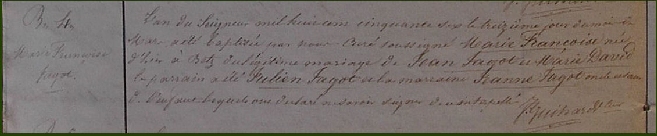 B. 4.
Marie Françoise
Jagot.
L'an du Seigneur mil huit cent cinquante six le treizième jour du mois de
Mai a été baptisée par nous Curé soussigné Marie Françoise née
hier à Betz du légitime mariage de Jean Jagot et Marie David
le parrain a été Julien Jagot et la marraine Jeanne Jagot oncle et tante
de l'enfant lesquels ont déclaré ne savoir signer de ce interpellés